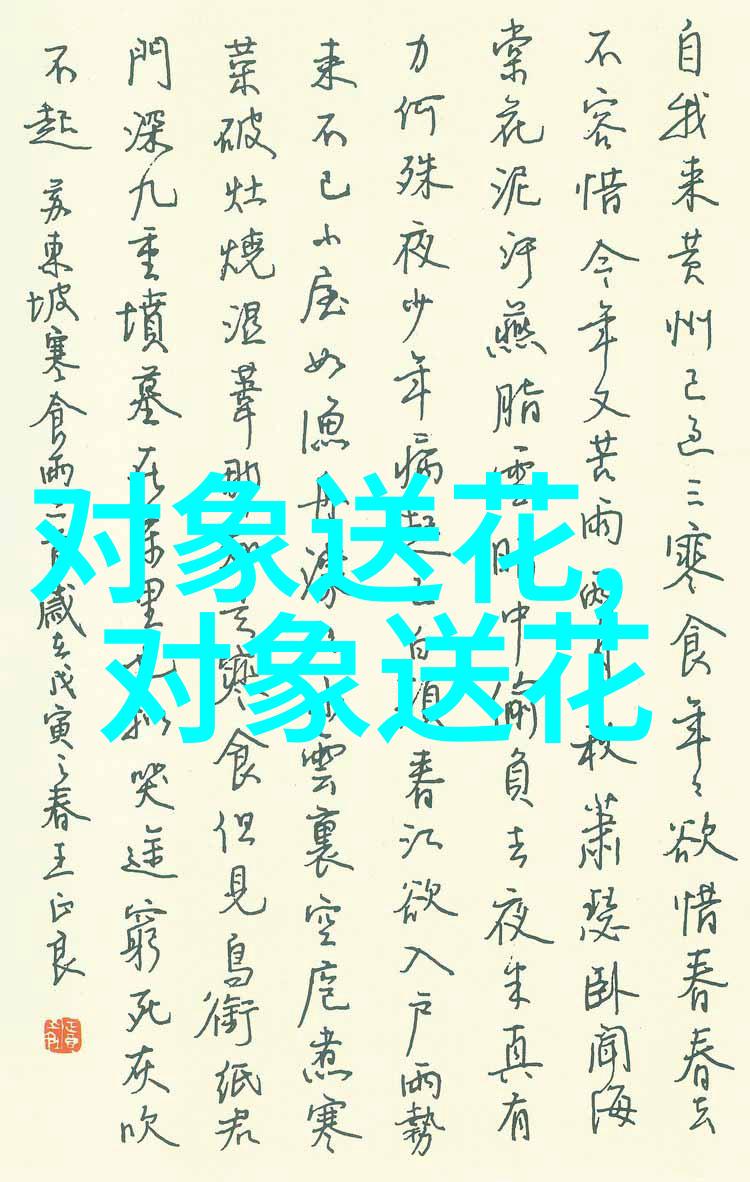 自我来黄州已过三寒食年々欲惜春春去
不容惜今年又苦雨兩月秋蕭瑟卧聞海
棠花泥汙燕脂雪暗中偷負去夜半真有
力何殊夜少年病起已白頭春江欲入户雨勢
来不已小屋如漁舟濛々水雲裏空庖煮寒
菜破灶燒湿葦那知是寒食但見烏銜紙君
門深九重墳墓在萬里也拟哭途窮死灰吹
不起 蘇東坡寒食雨二首歲在戊寅之春王正良
对象送花,
对象送花